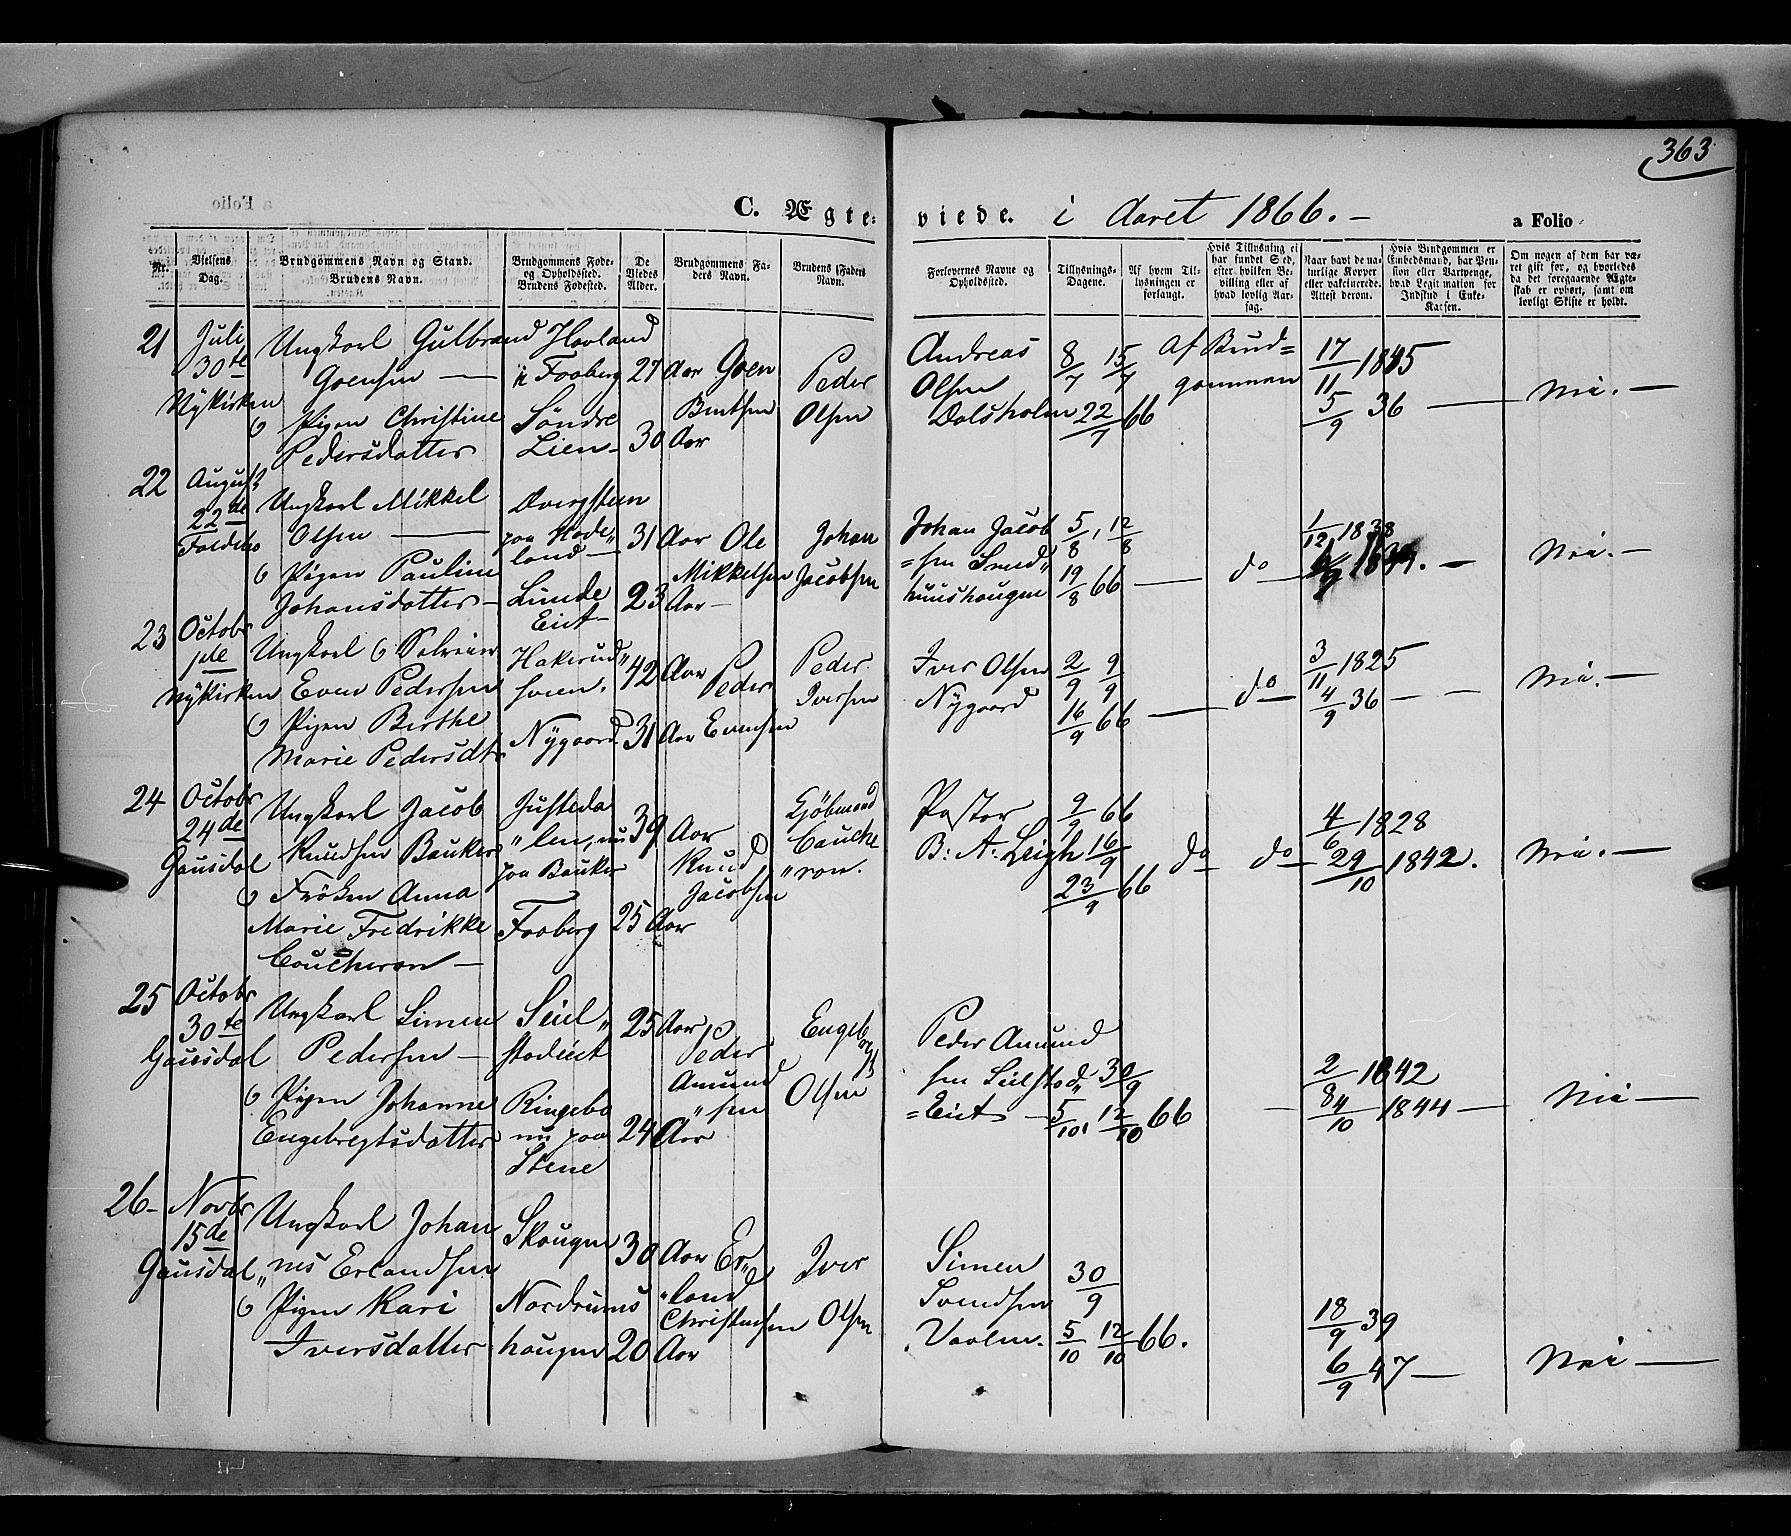 363
C. Ægteviede. i Aaret 1866. a Folio
Nr.
Vielsens Dag.
Brudgommens Navn og Stand. Brudens Navn.
Brudgommens Føde- og Opholdssted. Brudens Fødested.
De Viedes Alder.
Brudgommens Faders Navn.
Brudens Faders Navn.
Forlovernes Navne og Opholdssted.
Tillysnings-Dagene.
Af hvem Tillysningen er forlangt.
Hvis Tillysning ei har fundet Sted, efter hvilken Bevilling eller af hvad lovlig Aarsag.
Naar havt de naturlige Kopper eller vakcinerede. Attest derom.
Hvis Brudgommen er Embedsmand, har Pension eller Vartpenge, hvad Legitimation for Indskud i Enke-Kassen.
Om nogen af dem har været gift før, og hvorledes da det foregaaende Ægteskab er ophørt, samt om lovligt Skifte er holdt.
21 Juli 30te Nykirken
Ungkarl Gulbrand Goensen —
Hovland i Faaberg 27 Aar Goen Berntsen
Pigen Christine Pedersdatter
Søndre Lien 30 Aar
Peder Olsen
Andreas Olsen Dalsholm
8/7 15/7 22/7 66
Af Brudgommen
17/11 1845
5/9 36 — Nei. —
22 August 22de Foldens
Ungkarl Mikkel Olsen —
paa Hadeland — 31 Aar Ole Mikkelsen
Pigen Pauline Johansdatter —
Lunde Eiet — 23 Aar —
Johan Jacobsen
Johan Jacobsen
5/8, 12/8 19/8 66 — do —
1/12 1838
Nei. —
23 Octobr 1ste Nykirken
Ungkarl Even Pedersen
42 Aar Peder Evensen
Pigen Berthe Marie Pedersdtr
Nygaard 31 Aar
Peder Iversen
Iver Olsen Nygaard
2/9 9/9 16/9 66 — do —
3/11 1825
4/9 36 — — Nei. —
24 Octobr 24de Gausdal
Ungkarl Jacob Knudsen Bauker
Justedalen, nu paa Bauker 39 Aar Knud Jacobsen
Frøken Anna Marie Fredrikke Coucheron —
Faaberg 25 Aar
Coucheron.
Pastor B: A: Leigh
9/9 66 16/9 23/9 66 do do
4/6 1828
29/10 1842. Nei. —
25 Octobr 30te Gausdal
Ungkarl Simen Pedersen —
Seielstadeiet 25 Aar Peder Amundsen
Pigen Johanne Engebregtsdatter
Ringebo nu paa Stene 24 Aar
Engebregt Olsen
Peder Amundsen Seielstad Eiet
30/9 5/10, 12/10 66 —
2/8 1842
4/10 1844 — Nei —
26 — Novbr 15de Gausdal
Ungkarl Johannes Erlandsen
Skougen 30 Aar Erland Christensen
Pigen Kari Iversdatter
Nordrumshaugen 20 Aar
Iver Olsen
Simen Svendsen
30/9 5/10 12/10 66.
18/9 39
6/9 47 — Nei —